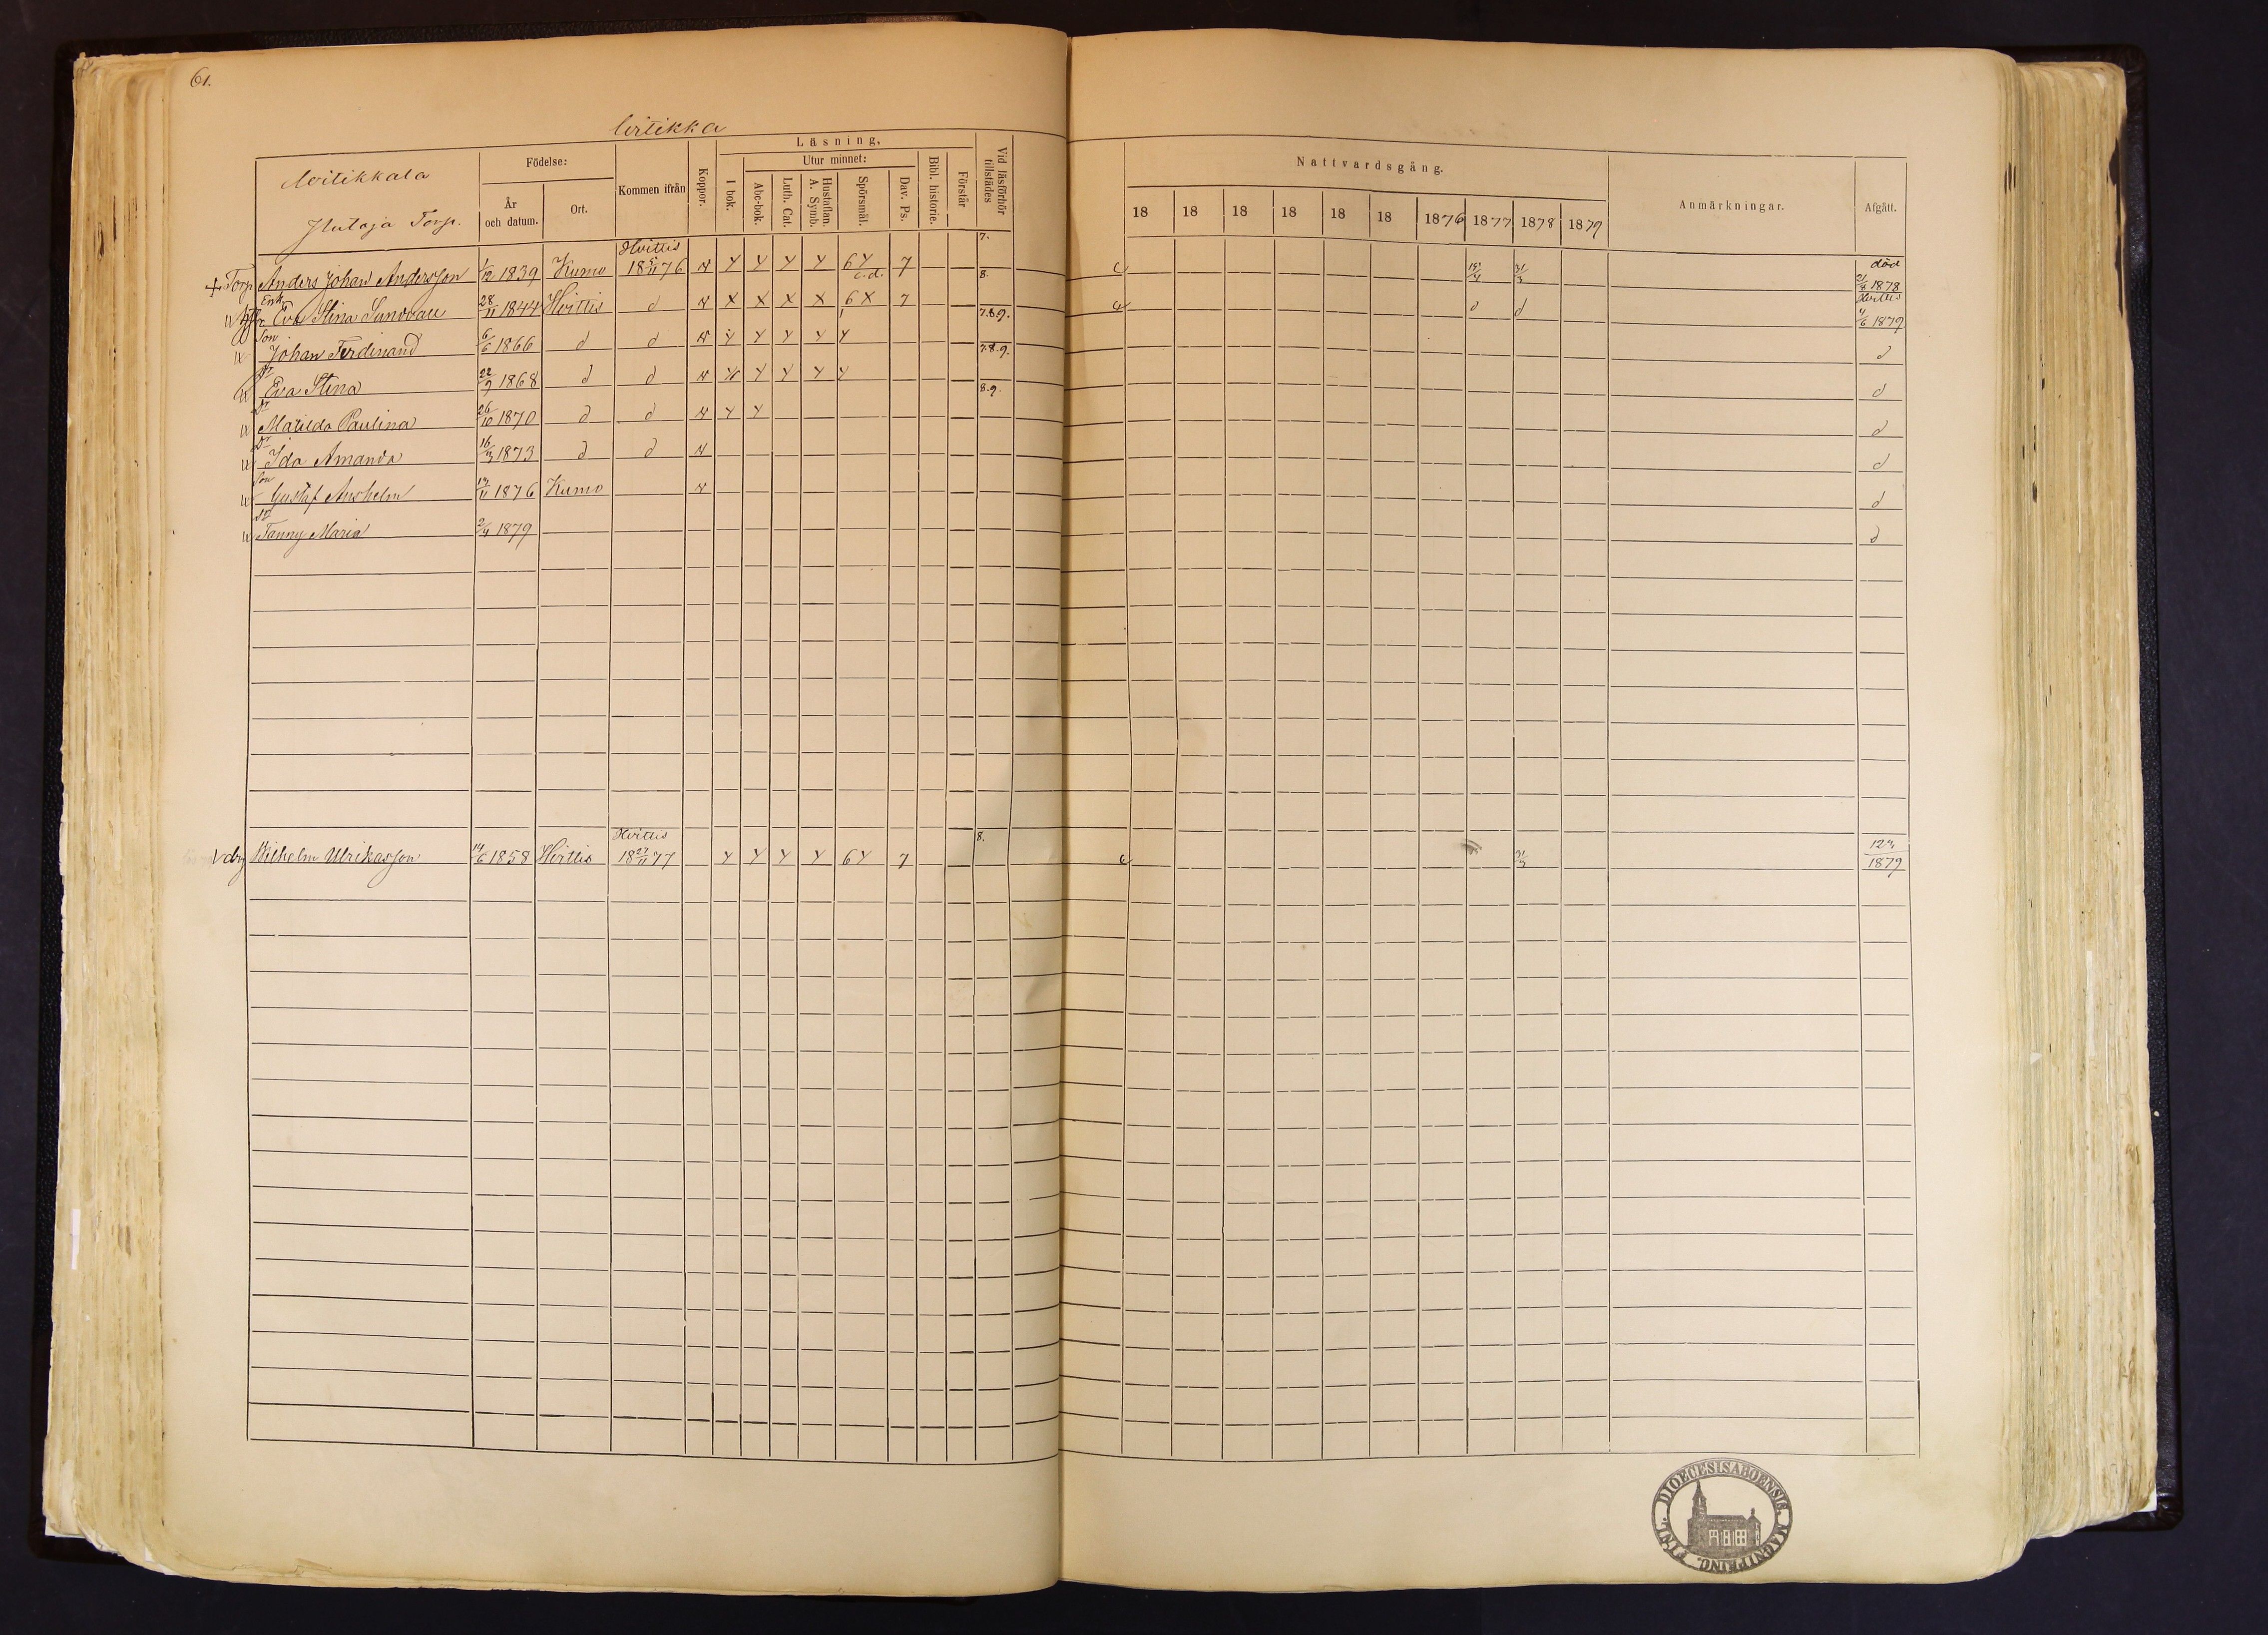 61.
Födelse:
Kommen ifrån
Koppor.
Läsning,
I bok.
Utur minnet:
Abc-bok.
Luth. Cat.
Hustaflan. A. Symb.
Spörsmål.
Dav. Ps.
Bibl. historie.
Förstår
Vid läsförhör tillstädes
Nattvardsgång.
Anmärkningar.
Afgått.
Torp.
År och datum.
Ort.
18 18 18 18 18 18 1876 1877 1878 1879
Torp Anders Johan Andersson 1/12 1839 Kumo Hvittis 18 5/11 76 Y Y Y Y 6Y c.d. 7 7. 8. död 21/8 1878
Enk. Eva Stina 28/11 1844 Hvittis d X X X X 6X 7 7.8.9. d d Hvittis 4/6 1879
Son Johan Ferdinand 6/6 1866 d d Y Y Y Y Y 7.8.9. d
Dr Eva Stina 22/9 1868 d d Y Y Y Y 8.9. d
Dr Matilda Paulina 26/10 1870 d d Y Y d
Dr Ida Amanda 16/3 1873 d d d
Son Gustaf Anshelm 1876 Kumo d
Dr Fanny Maria 2/4 1879 d
Wilhelm Ulrikasson 14/6 1858 Hvittis Hvittis 18 27/11 77 Y Y Y Y 6Y 7 8. 31/3 1879
DIOECESIS ABOENSIS. MAGNI PRINC. FINL.